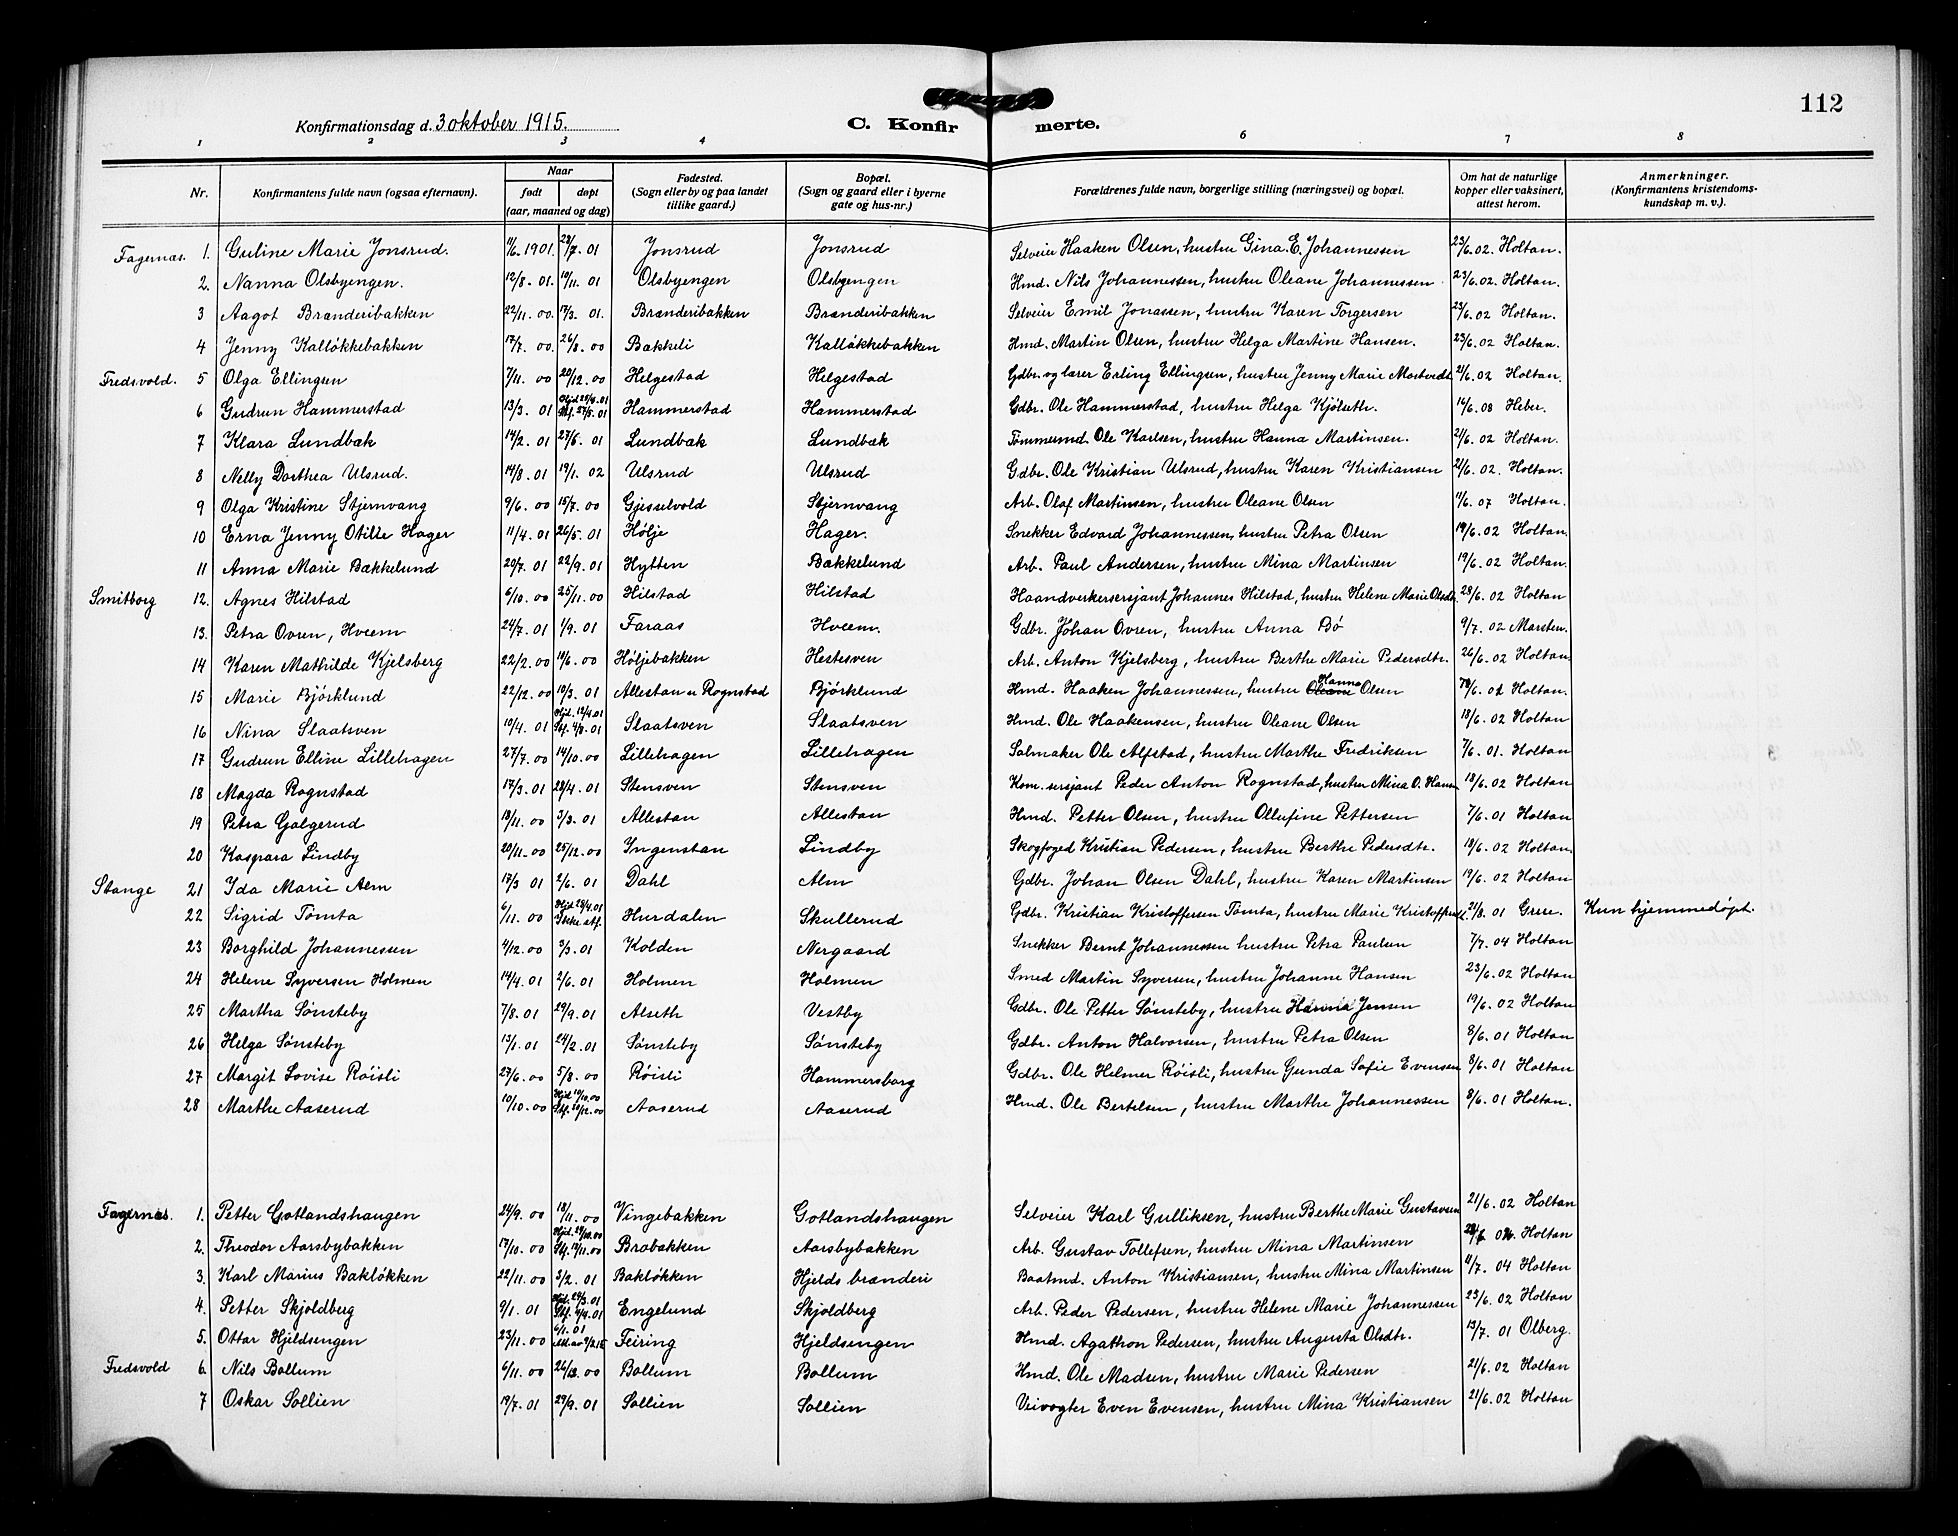 112
Konfirmationsdag d. 3 oktober 1915.
C. Konfirmerte.
1 2 3 4 6 7 8
Nr. Konfirmantens fulde navn (ogsaa efternavn). Naar født døpt (aar, maaned og dag) Fødested. (Sogn eller by og paa landet tillike gaard.) Bopæl. (Sogn og gaard eller i byerne gate og hus-nr.) Forældrenes fulde navn, borgerlige stilling (næringsvei) og bopæl. Om hat de naturlige kopper eller vaksinert, attest herom. Anmerkninger. (Konfirmantens kristendoms-kundskap m. v.).
Fagernæs. 1. Guline Marie Jonsrud. 11/6. 1901. 28/7. 01 Jonsrud Jonsrud Selveier Haaken Olsen, hustru Gina E. Johannessen 23/6. 02. Holtan.
2. Nanna Olsbyengen. 12/8. 01. 10/11. 01 Olsbyengen Olsbyengen Hmd. Nils Johannessen, hustru Oleane Johannessen 23/6. 02. Holtan.
3 Aagot Brænderibakken 22/11. 00. 17/3. 01. Brænderibakken Brænderibakken Selveier Emil Jonassen, hustru Karen Torgersen 23/6. 02 Holtan.
4 Jenny Kalløkkebakken 17/7. 00. 26/8. 00 Bakkeli Kalløkkebakken Hmd. Martin Olsen, hustru Helga Martine Hansen. 23/6. 02 Holtan.
Fredsvold. 5 Olga Ellingsen 7/11. 00 20/12. 00 Helgestad Helgestad Gdbr. og lærer Erling Ellingsen, hustru Jenny Marie 21/6. 02 Holtan.
6 Gudrun Hammerstad 13/3. 01 Hammerstad Hammerstad Gdbr. Ole Hammerstad, hustru Helga Kjølseth. 14/6. 08 Heber.
7 Klara Lundbæk 14/2. 01 27/5. 01 Lundbæk Lundbæk Tømmermd. Ole Karlsen, hustru Hanna Martinsen. 21/6. 02 Holtan.
8 Nelly Dorthea Ulsrud. 14/8. 01 19/1. 02 Ulsrud Ulsrud Gdbr. Ole Kristian Ulsrud, hustru Karen Kristiansen 21/6. 02. Holtan.
9 Olga Kristine Stjernvang 9/6. 00 15/7. 00 Gjesselvold Stjernvang Arb. Olaf Martinsen, hustru Oleane Olsen 11/6. 07 Holtan.
10 Erna Jenny Otilie Hager 11/4. 01 26/5. 01 Hølje Hager. Snekker Edvard Johannessen, hustru Petra Olsen 19/6. 02 Holtan.
11 Anna Marie Bækkelund 20/7. 01 22/9. 01 Hytten Bækkelund Arb. Paul Andersen, hustru Mina Martinsen 19/6. 02 Holtan.
Smitborg 12. Agnes Hilstad 6/10. 00 25/11. 00 Hilstad Hilstad Haandverkersersjant Johannes Hilstad, hustru Helene Marie Olsdtr. 28/6. 02 Holtan
13. Petra Ovren, Hveem 24/7. 01 1/9. 01 Faraas Hveem. Gdbr. Johan Ovren, hustru Anna Bø 9/7. 02 Marsten.
14 Karen Mathilde Kjelsberg 22/2. 00 Høljebakken Hestesven Arb. Anton Kjelsberg, hustru Berthe Marie Pedersdtr. 26/6. 02 Holtan.
15 Marie Bjørklund 22/12. 00 10/3. 01 Allestan u Rognstad Bjørklund Hmd. Haaken Johannessen, hustru Oleane Hanna Olsen Holtan.
16 Nina Slaatsven 10/4. 01 Hjd. 12/4. 01 Stf. 4/8. 01 Slaatsven Slaatsven Hmd. Ole Haakensen, hustru Oleane Olsen 18/6. 02 Holtan
17 Gudrun Elline Lillehagen 27/7. 00 14/10. 00 Lillehagen Lillehagen Salmaker Ole Alfstad, hustru Marthe Fredriksen 7/6. 01. Holtan
18 Magda Rognstad 17/3. 01 28/4. 01 Stensven Stensven Kom. sersjant Peder Anton Rognstad, hustru Mina O. Hansen 18/6. 02 Holtan
19 Petra Galgerud 18/11. 00 3/3. 01 Allestan Allestan Hmd. Petter Olsen, hustru Ollefine Pettersen 7/6. 01 Holtan
20 Kaspara Lindby 20/11. 00 25/12. 00 Yngenstan Lindby Skogfoged Kristian Pedersen, hustru Berthe Pedersdtr. 19/6. 02 Holtan.
Stange 21 Ida Marie Alm 17/3 01 2/6. 01 Dahl Alm Gdbr. Johan Olsen Dahl, hustru Karen Martinsen 19/6. 02 Holtan
22 Sigrid Tømta 6/11. 00 Hurdalen Skullerud Gdbr. Kristian Kristoffersen Tømta, hustru Marie 21/8. 01 Kun hjemmedøpt.
23 Borghild Johannessen 4/12. 00 3/3. 01 Kolden Nergaard Snekker Bernt Johannessen hustru Petra Paulsen 7/7. 04 Holtan
24 Helene Syversen Holmen 14/4. 01 2/6. 01 Holmen Holmen Smed Martin Syversen, hustru Johanne Hansen 23/6. 02 Holtan
25 Martha Sønsteby 7/8. 01 29/9. 01 Alseth Vestby Gdbr. Ole Petter Sønsteby, hustru Hanna Jensen 19/6. 02 Holtan
26 Helga Sønsteby 13/1. 01 24/2. 01 Sønsteby Sønsteby Gdbr. Anton Halvorsen, hustru Petra Olsen 8/6. 01 Holtan
27 Margit Lovise Røisli 27/6. 00 5/8. 00 Røisli Hammersborg Gdbr. Ole Helmer Røisli, hustru Gunda Sofie Evensen 8/6. 01 Holtan
28 Marthe Aaserud 10/10. 00 Aaserud Aaserud Hmd. Ole Bertelsen, hustru Marthe Johannessen 8/6. 01 Holtan.
Fagernæs. 1. Petter Gotlandshaugen 24/9. 00 18/11. 00 Vingebakken Gotlandshaugen Selveier Karl Gulliksen, hustru Berthe Marie Gustavsen 21/6. 02 Holtan
2. Theodor Aarsbybakken 17/10. 00 Brobakken Aarsbybakken Arb. Gustav Tollefsen, hustru Mina Martinsen Holtan
3. Karl Marius Bakløkken 22/11. 00 3/2. 01 Bakløkken Hjelds brænderi Baatmd. Anton Kristiansen, hustru Mina Martinsen 11/7. 04 Holtan
4. Petter Skjoldberg 9/1. 01 Engelund Skjoldberg Arb. Peder Pedersen, hustru Helene Marie Johannessen 23/6. 02 Holtan
5. Ottar Hjeldsengen 23/11. 00 6/1. 01 Feiring Hjeldsengen Hmd. Agathon Pedersen, hustru Augusta Olsdtr. 13/7. 01 Ølberg.
Fredsvold 6. Nils Bollum 6/11. 00 26/12. 00 Bollum Bollum Hmd. Ole Madsen, hustru Marie Pedersen 21/6. 02 Holtan
7 Oskar Sollien 19/7. 01 29/9. 01 Sollien Sollien Veivogter Even Evensen, hustru Mina Kristiansen 21/6. 02 Holtan